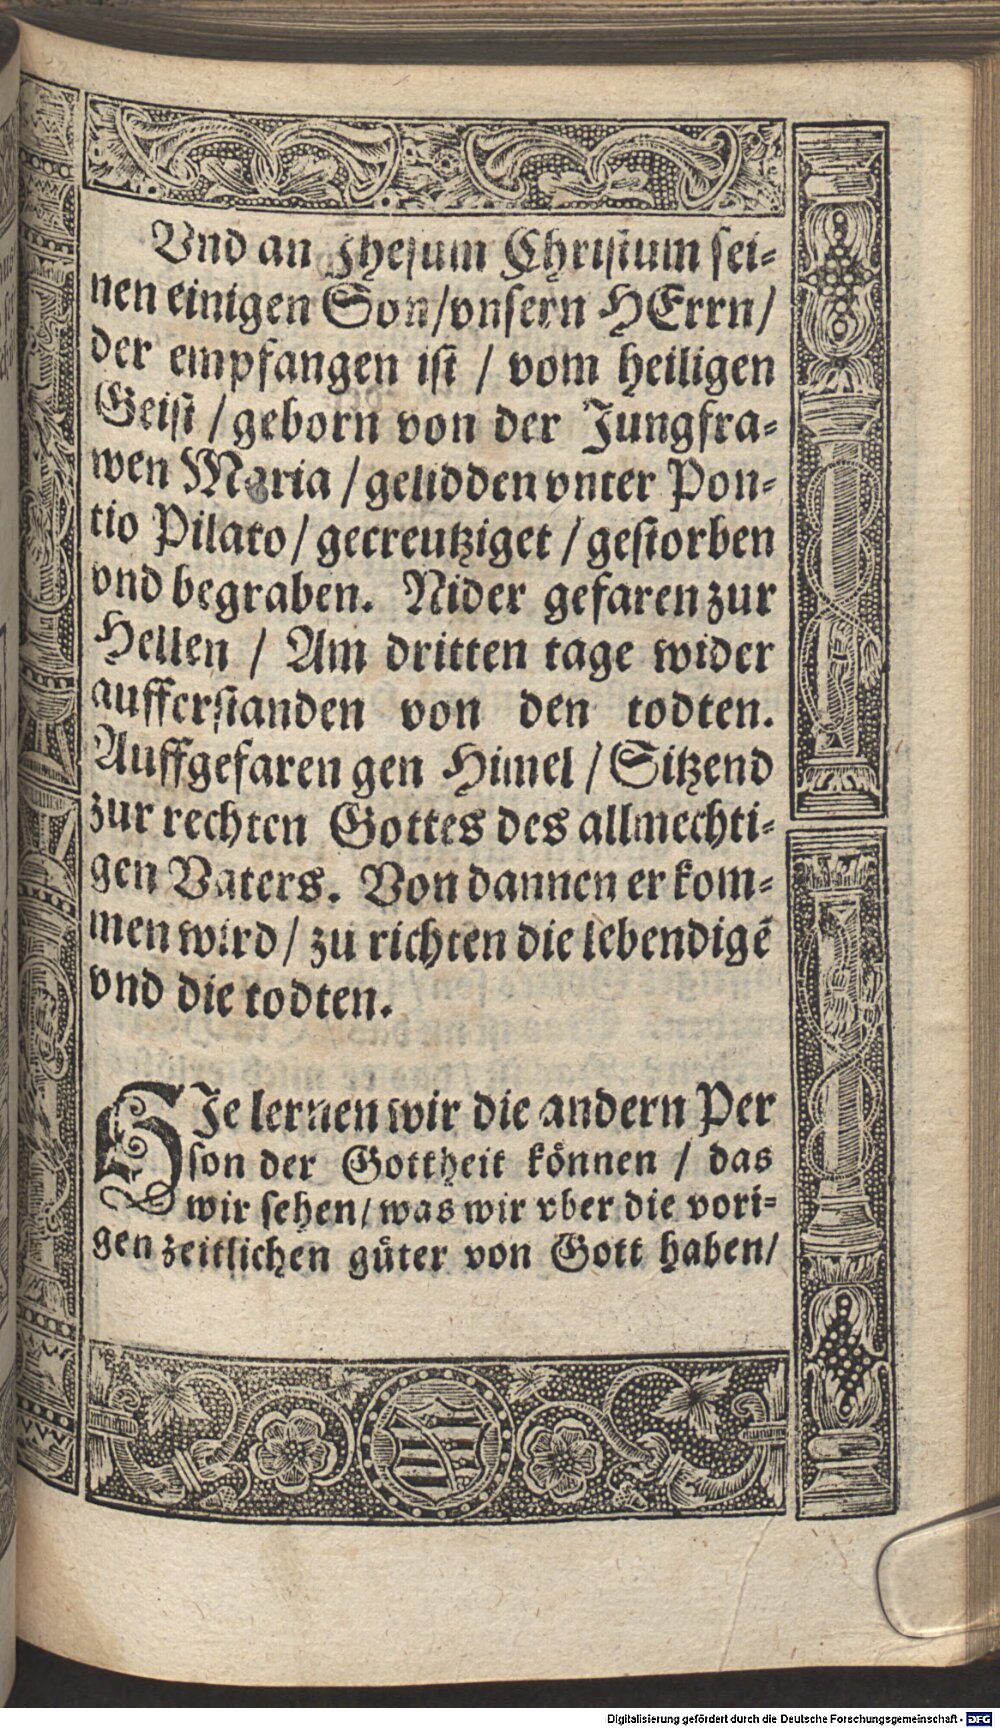 Vnd an Jhesum Christum sei⸗
nen einigen Son/vnsern HErrn/
der empfangen ist / vom heiligen
Geist / geborn von der Jungfra⸗
wen Maria / gelidden vnter Pon⸗
tio Pilato/ gecreutziget / gestorben
vnd begraben. Nider gefaren zur
Hellen / Am dritten tage wider
aufferstanden von den todten.
Auffgefaren gen Himel / Sitzend
zur rechten Gottes des allmechti⸗
gen Vaters. Von dannen er kom⸗
men wird/ zu richten die lebendigē
vnd die todten.
HJe lernen wir die andern Per
son der Gottheit können / das
wir sehen/ was wir vber die vori⸗
gen zeitlichen güter von Gott haben/
Digitalisierung gefördert durch die Deutsche Forschungsgemeinschaft - DFG